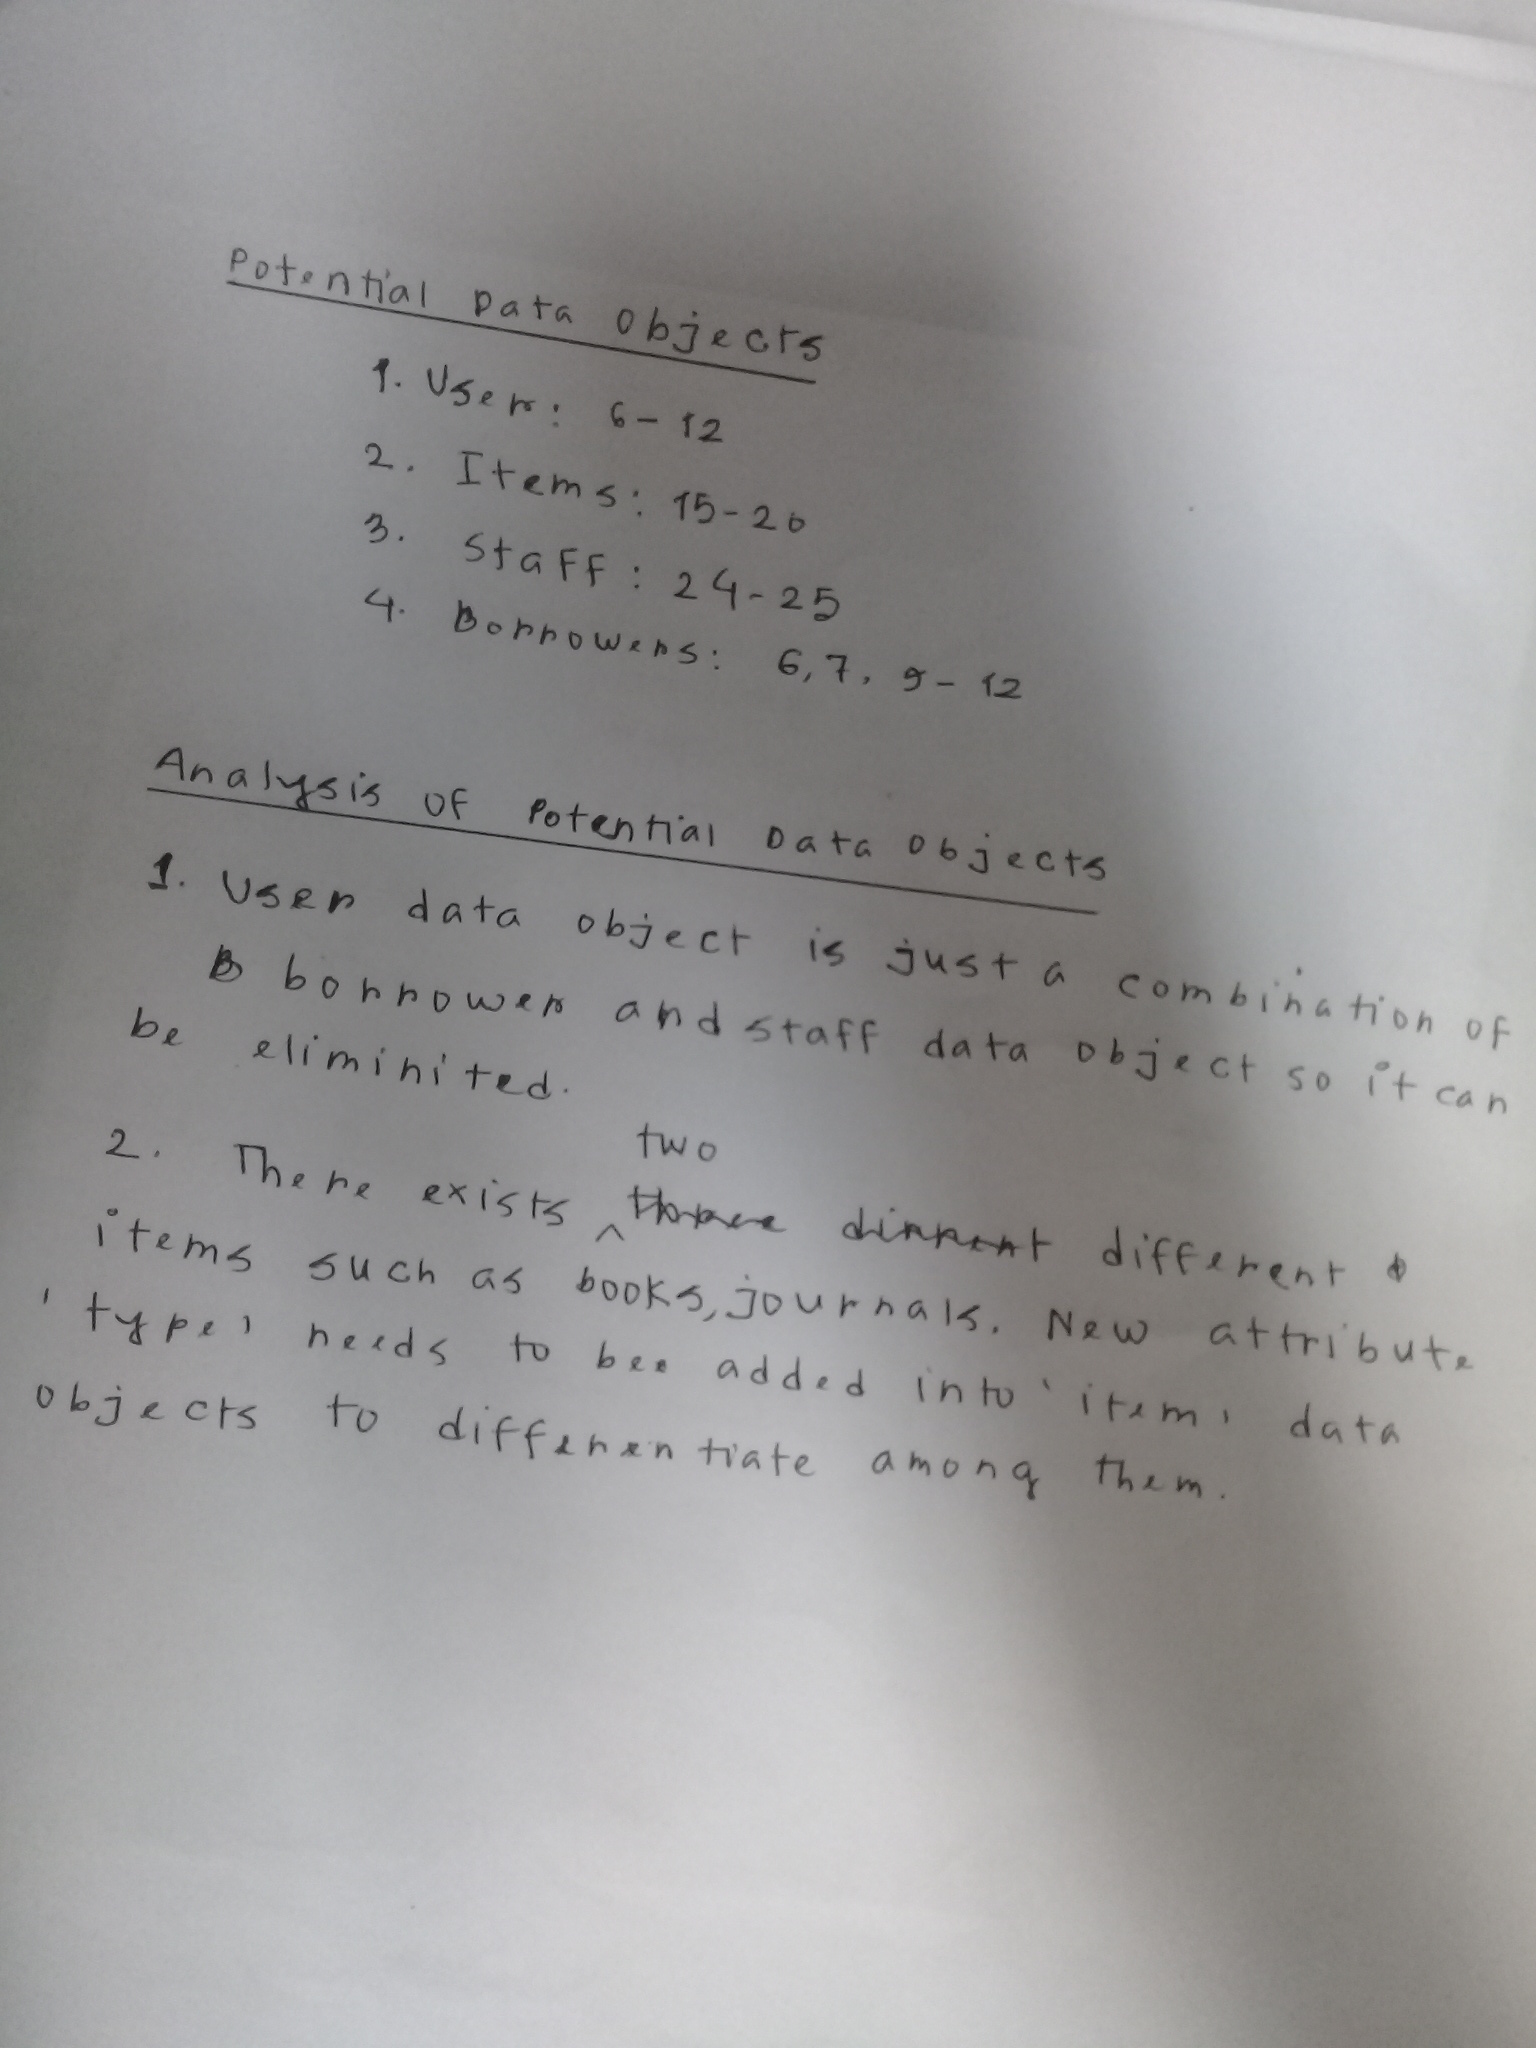 Potential Data Objects
1. User: 6-12
2. Items: 15-20
3. Staff: 24-25
4. Borrowers: 6,7, 9-12
Analysis of Potential Data Objects
1. User data object is just a combination of
B borrower and staff data object so it can
be eliminited.
two
2. There exists ^ different
items such as books, journals. New attribute
'type' needs to bee added into 'item' data
objects to differentiate among them.